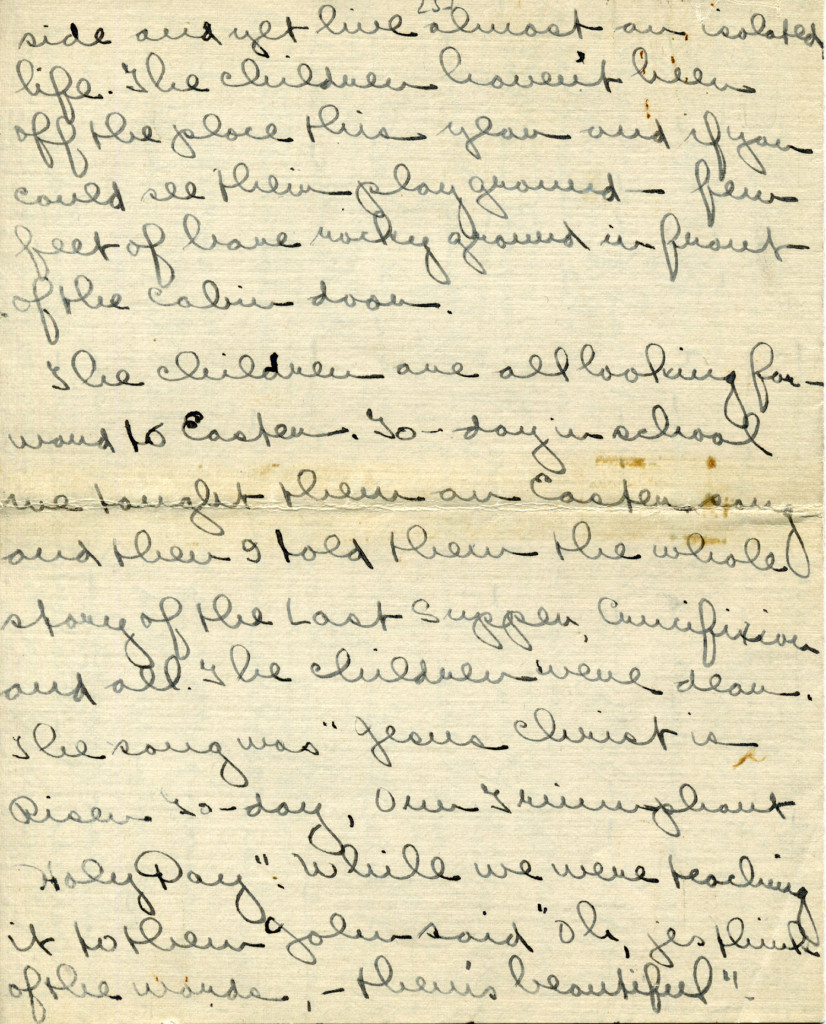 side and yet live almost an isolated
life. The children haven't been
off the place this year and if you
could see their play ground – few
feet of bare rocky ground in front
of the cabin door.
The children are all looking for-
ward to Easter. To-day in school
we taught them an Easter song
and then I told them the whole
story of the Last Supper, Crucifixion
and all. The children were dear.
The song was "Jesus Christ is
Risen To-day, Our Triumphant
Holy Day". While we were teaching
it to them John said "Oh, jes think
of the words, – them's beautiful".